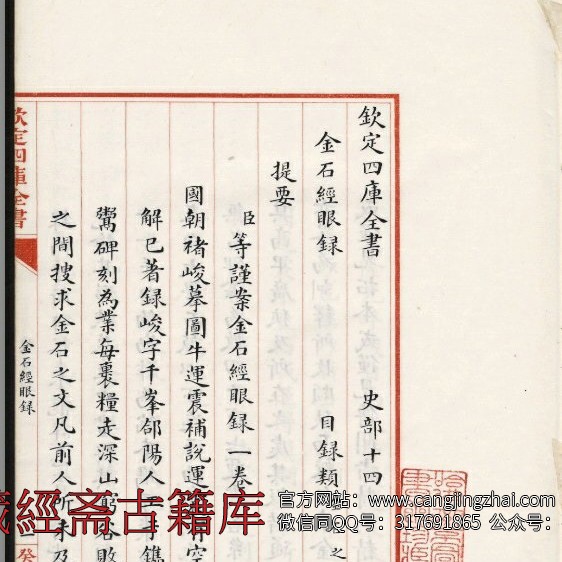 欽定四庫全書 史部十四
金石經眼録 目録類 之
提要
臣等謹案金石經眼録一卷
國朝褚峻摹圖牛運震補説運
解已著録峻字千峯郃陽人工手鐫
鬻碑刻為業每裹糧走深山窮谷敗
之間搜求金石之文凡前人所未及
欽定四庫全書
金石經眼録
藏經斋古籍库
官方网站：www.cangjingzhai.com
微信同QQ号：317691865 公众号：